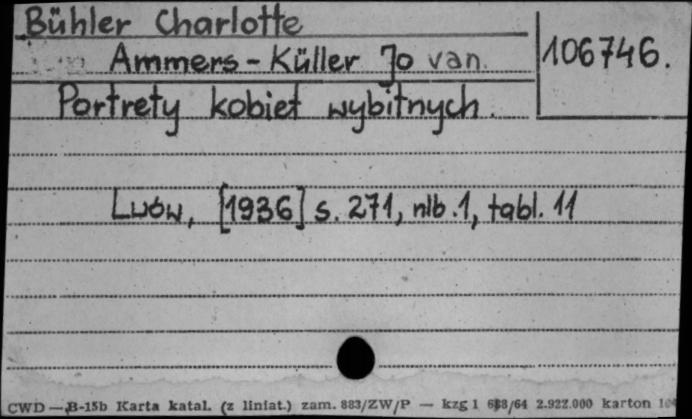 Bühler Charlotte
Ammers-Küller Jo van.
106746.
Portrety kobiet wybitnych.
Lwów, [1936] s. 271, nlb.1, tabl. 11
CWD — B-15b Karta katal. (z liniat.) zam. 883/ZW/P — kzg 1 /64 2.922.000 karton